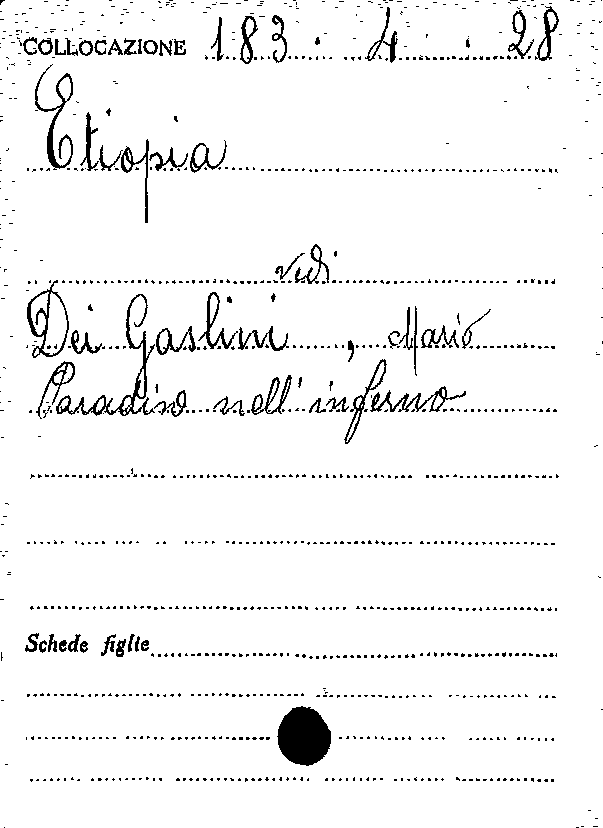 COLLOCAZIONE 183 . 4 . 28
Etiopia
vedi
Dei Gaslini, Mario
Paradiso nell'inferno
Schede figlie